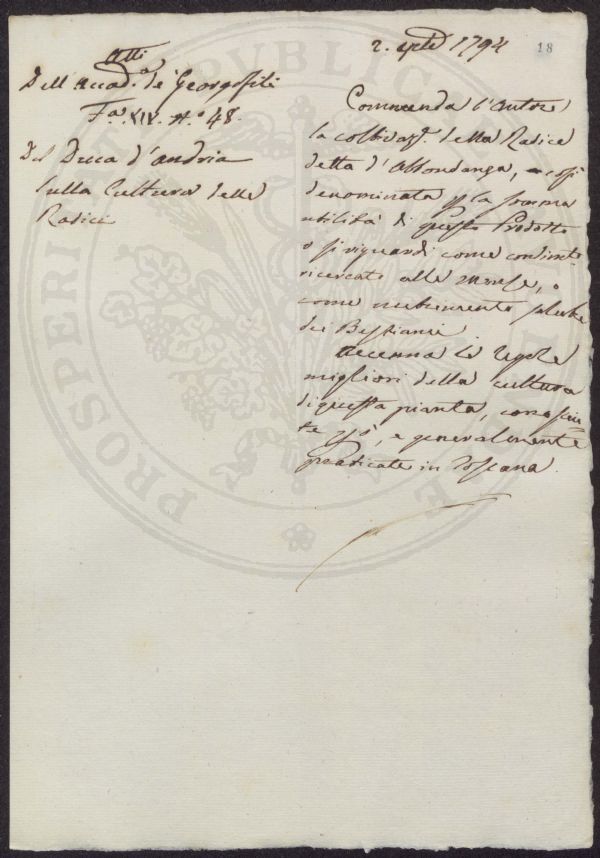 2. 1794
18
Atti
Dell'Accad.a de' Georgofili
Fa. XIV. N.o 48.
Del Duca d'Andria
sulla Cultura delle
Radici
Commenda l'autore
la coltivaz. della Radice
detta d'Abbondanza, così
denominata p la somma
utilità di questo Prodotto
o si riguardi come condim.to
ricercato alle mense, o
come nutrimento salubre
dei Bestiami
Accenna le regole
migliori della cultura
di questa pianta, conosciu=
te già, e generalmente
praticate in Toscana.
PROSPERITATI PUBLICAE